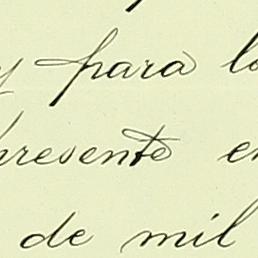 y para lo
presente en
de mil